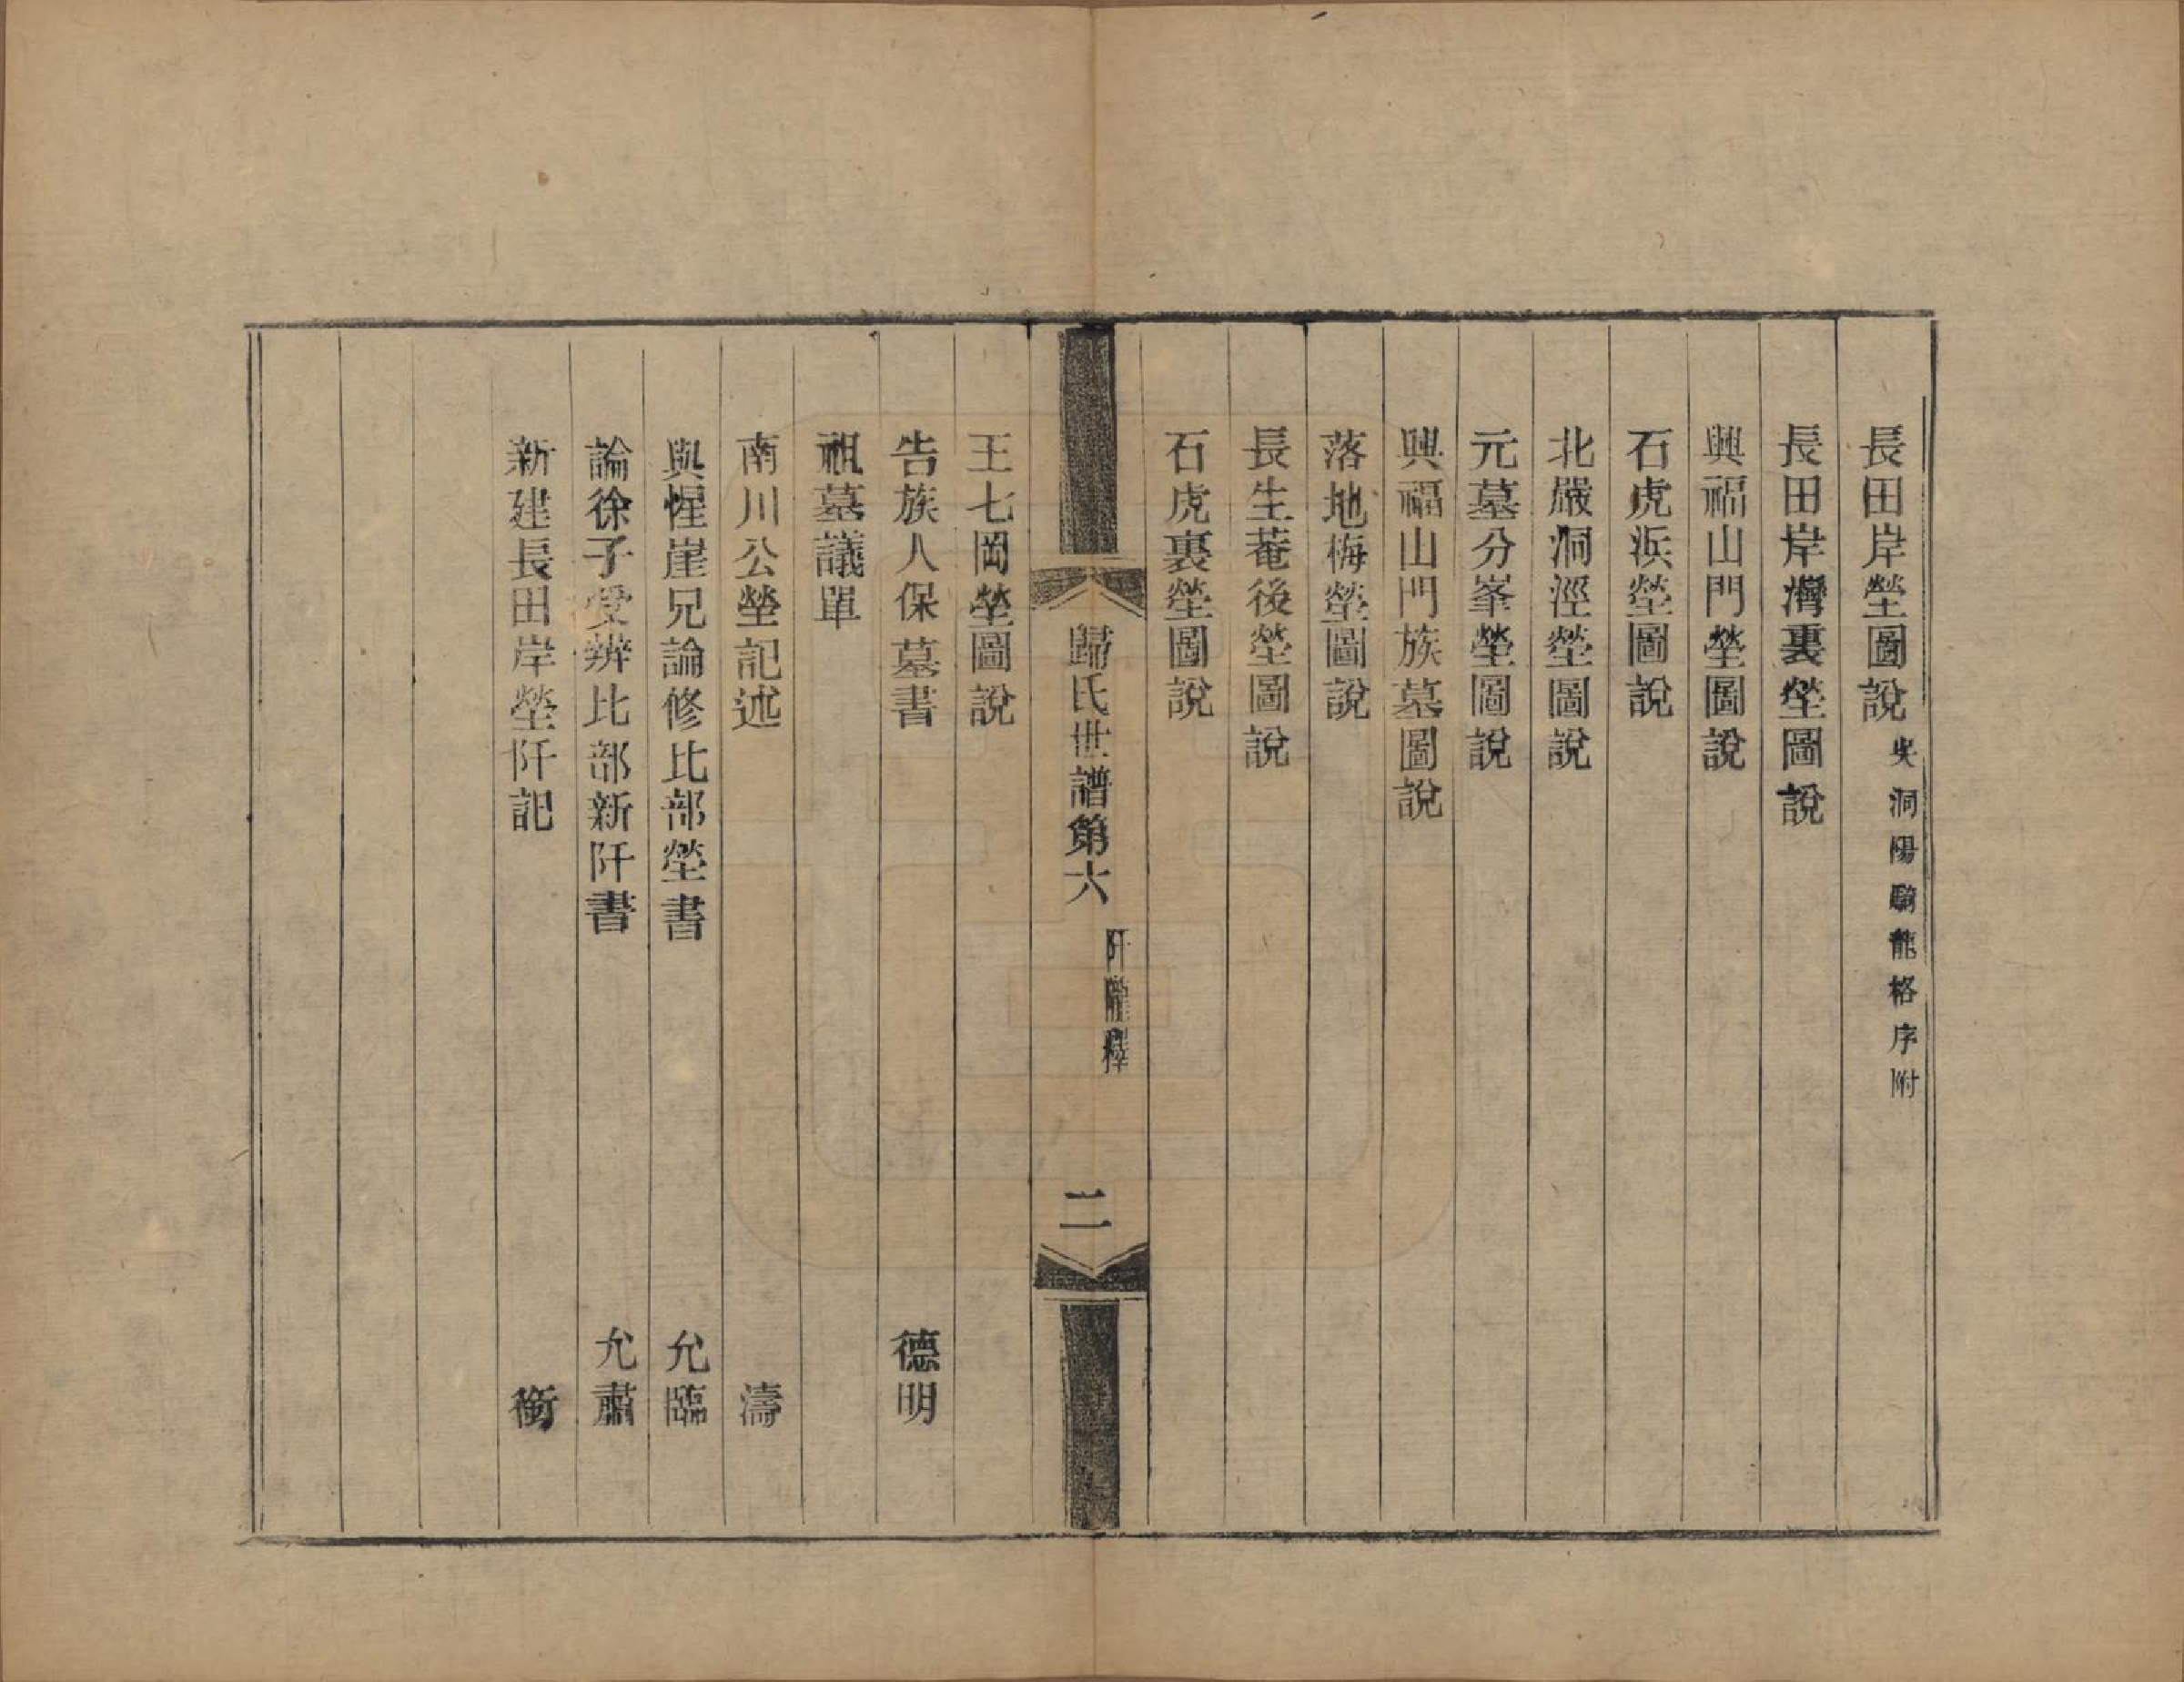 長田岸塋圖說 史洞陽騎龍格序附
長田岸灣裏塋圖說
興福山門塋圖說
石虎浜塋圖說
北嚴洞涇塋圖說
元墓分峯塋圖說
興福山門族墓圖說
落地梅塋圖說
長生菴後塋圖說
石虎裏塋圖說
歸氏世譜第六 阡隴釋 二
王七岡塋圖說
告族人保墓書 德明
祖墓議單
南川公塋記述 濤
與惺崖兄論修比部塋書 允臨
論徐子受辨比部新阡書 允肅
新建長田岸塋阡記 衡